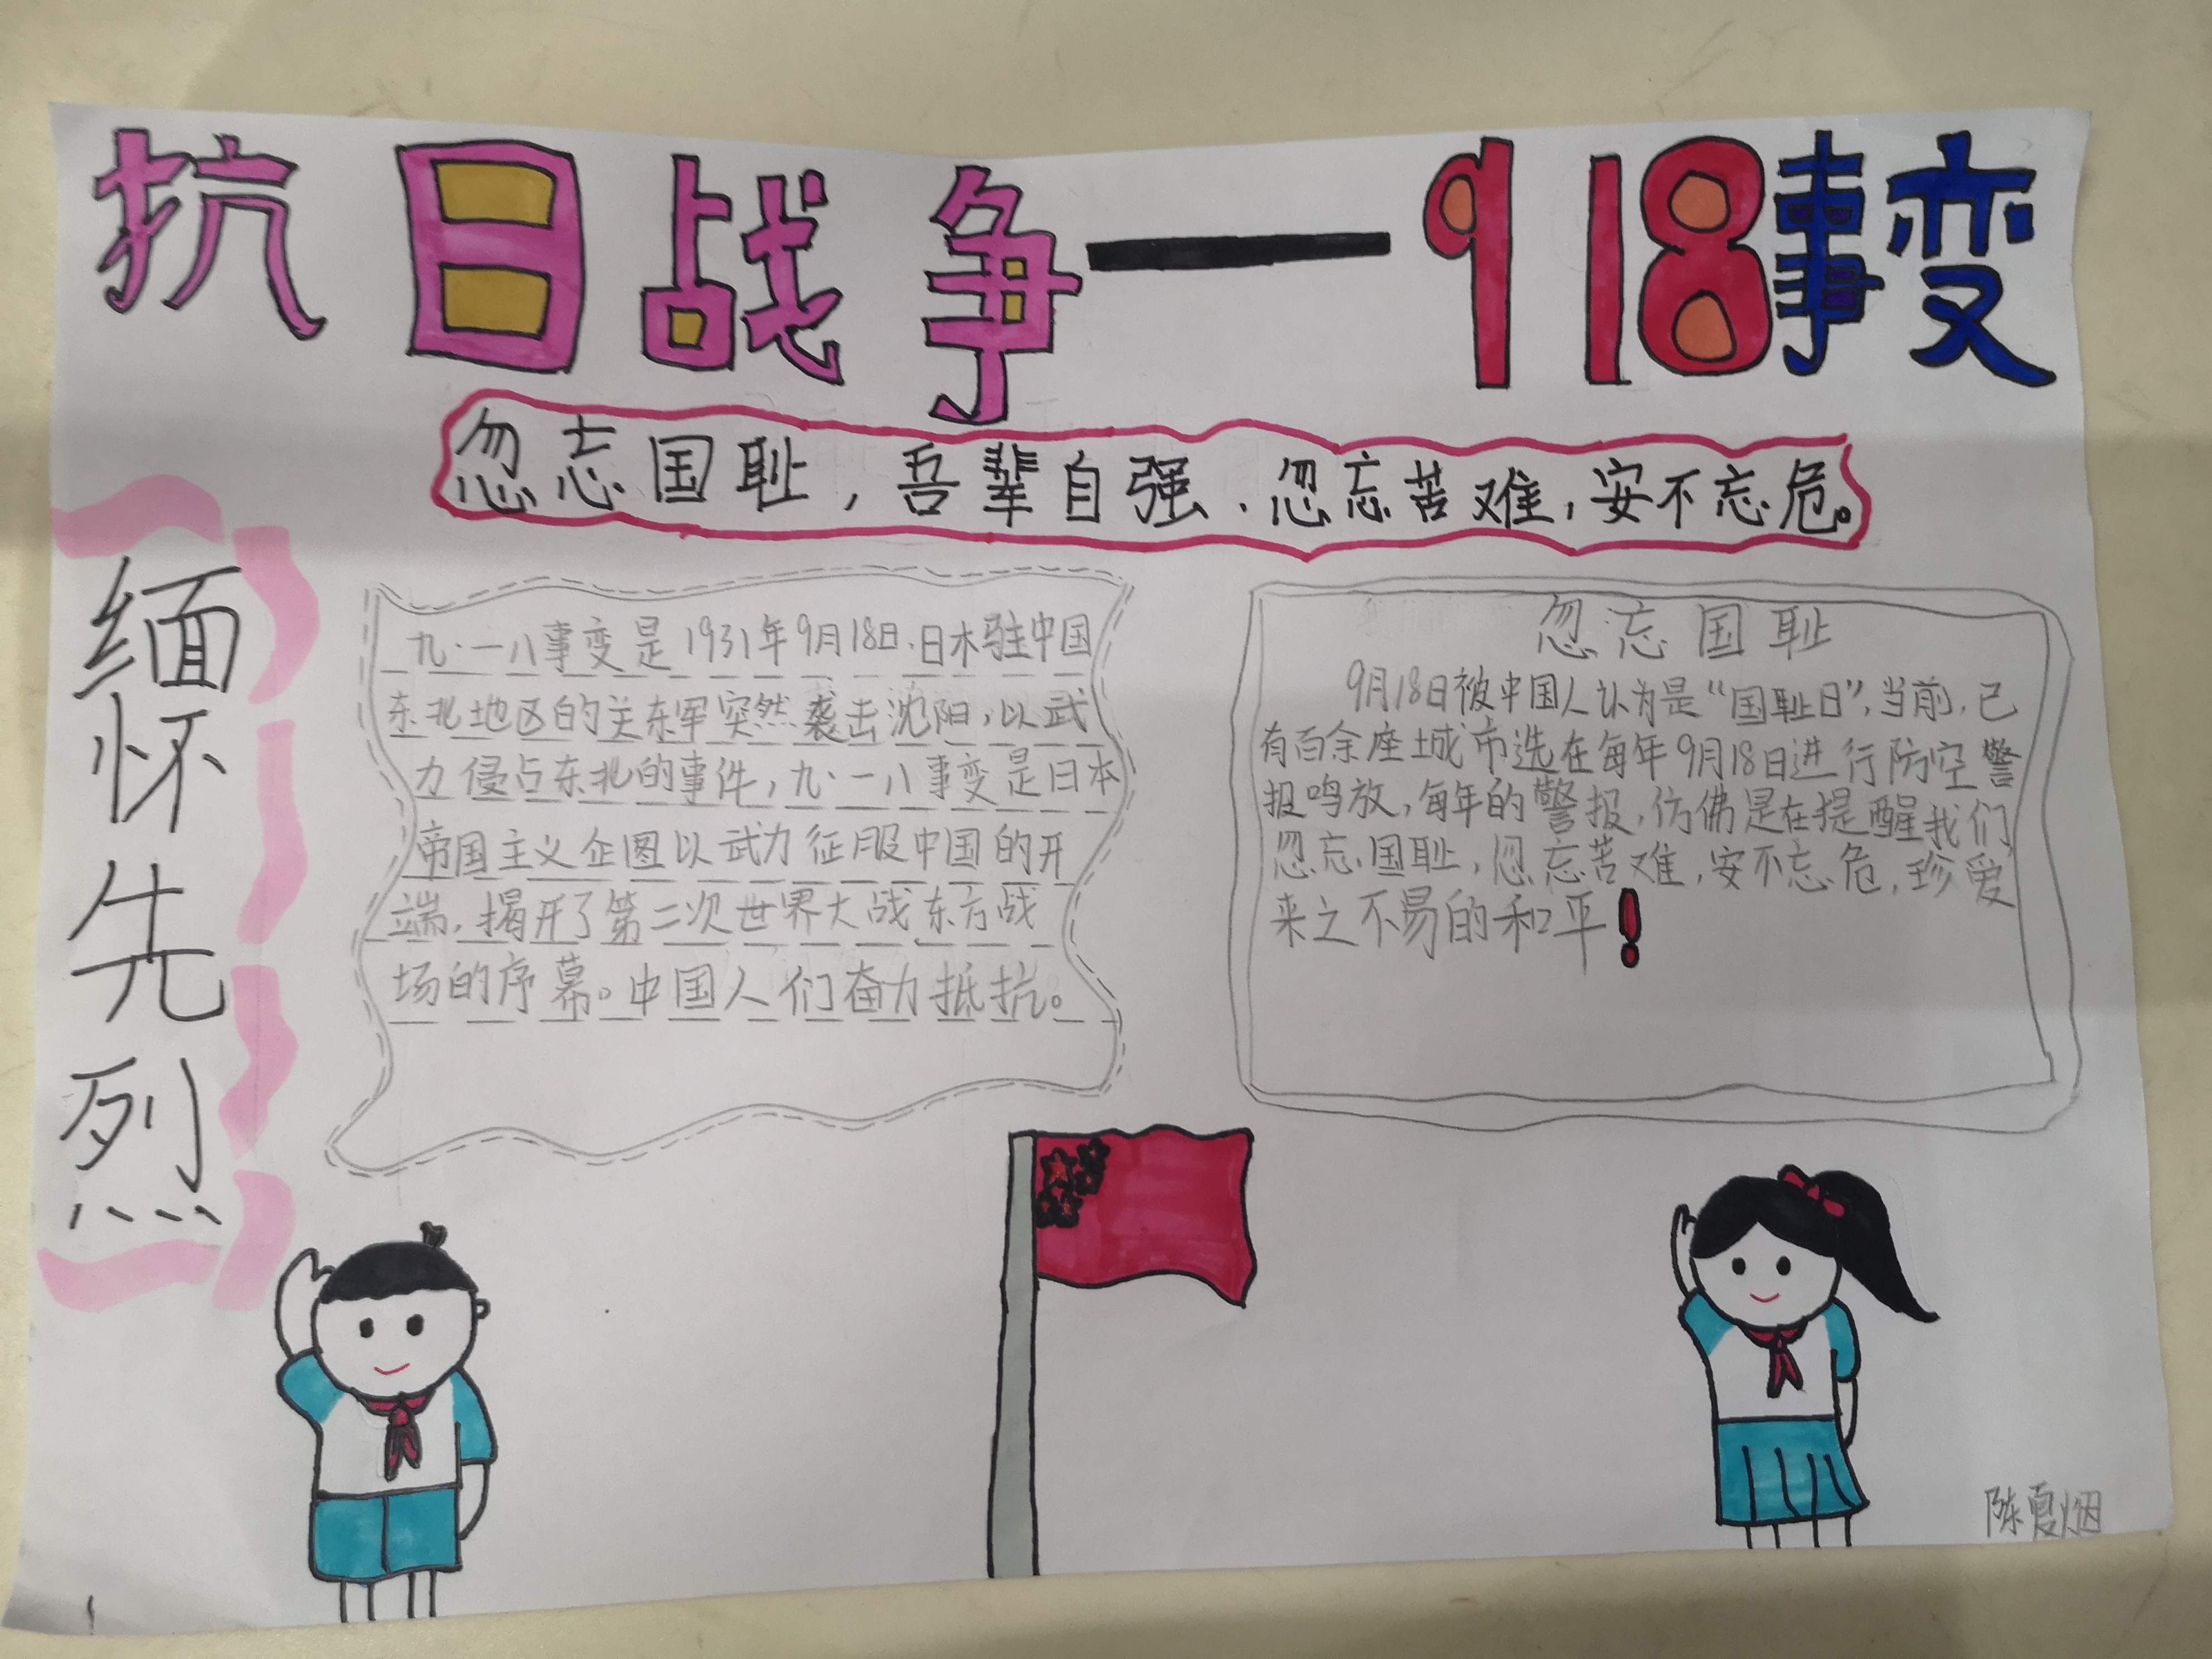 抗日战争——918事变
忽志国耻，吾辈自强、忽忘苦难，安不忘危。
缅怀先烈
九·一八事变是1931年9月18日、日本驻中国
东北地区的关东军突然袭击沈阳，以武
力侵占东北的事件，九·一八事变是日本
帝国主义企图以武力征服中国的开
端，揭开了第二次世界大战东方战
场的序幕。中国人们奋力抵抗。
忽忘国耻
9月18日被中国人认为是“国耻日”，当前，已
有百余座城市选在每年9月18日进行防空警
报鸣放，每年的警报，仿佛是在提醒我们
忽忘国耻，忽忘苦难，安不忘危，珍爱
来之不易的和平！
陈夏烟